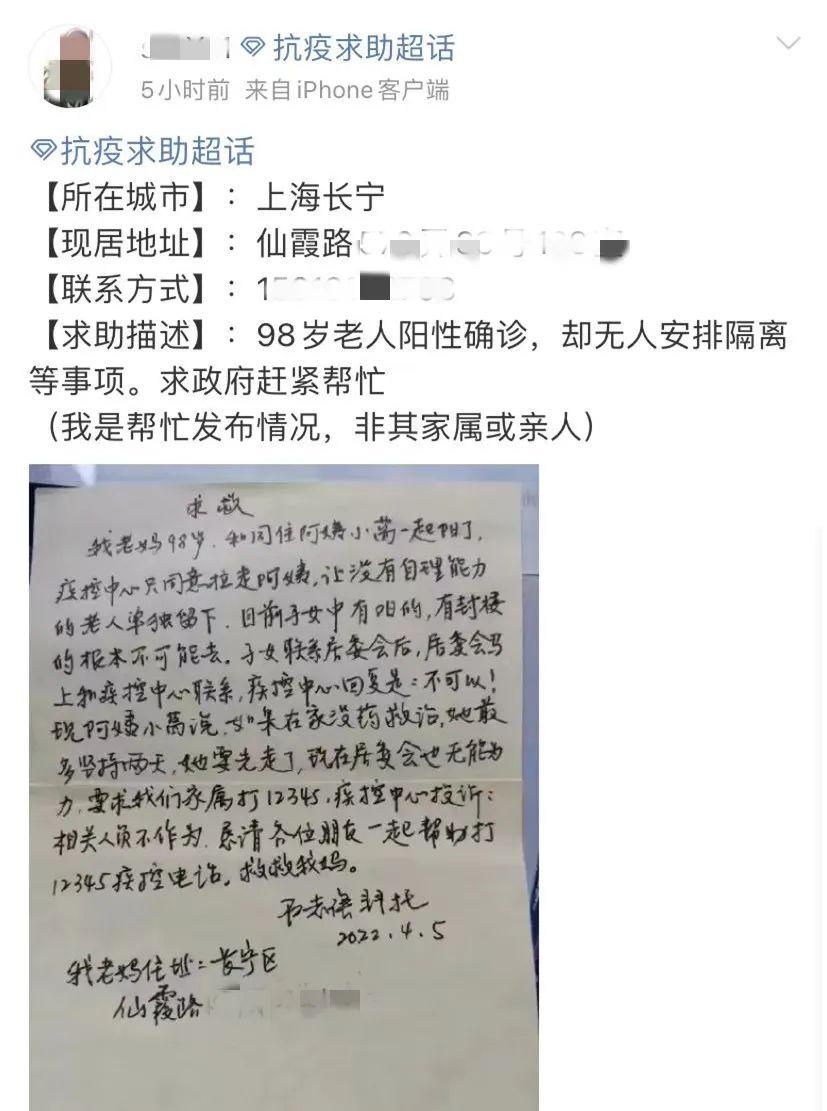 抗疫求助超话
5小时前 来自iPhone客户端
抗疫求助超话
【所在城市】：上海长宁
【现居地址】：仙霞路
【联系方式】：1
【求助描述】：98岁老人阳性确诊，却无人安排隔离
等事项。求政府赶紧帮忙
（我是帮忙发布情况，非其家属或亲人）
求救
我老妈98岁，和同住阿姨小萬一起阳了，
疾控中心只同意拉走阿姨，让没有自理能力
的老人单独留下，目前子女中有阳的，有封楼
的根本不可能去。子女联系居委会后，居委会马
上和疾控中心联系，疾控中心回复是：不可以！
现阿姨小萬说，如果在家没药救治，她最
多坚持两天，她要先走了，现在居委会也无能为
力，要求我们家属打12345，疾控中心投诉：
相关人员不作为，恳请各位朋友一起帮助打
12345疾控电话。救救我妈。
拜托
2022.4.5
我老妈住址：长宁区
仙霞路